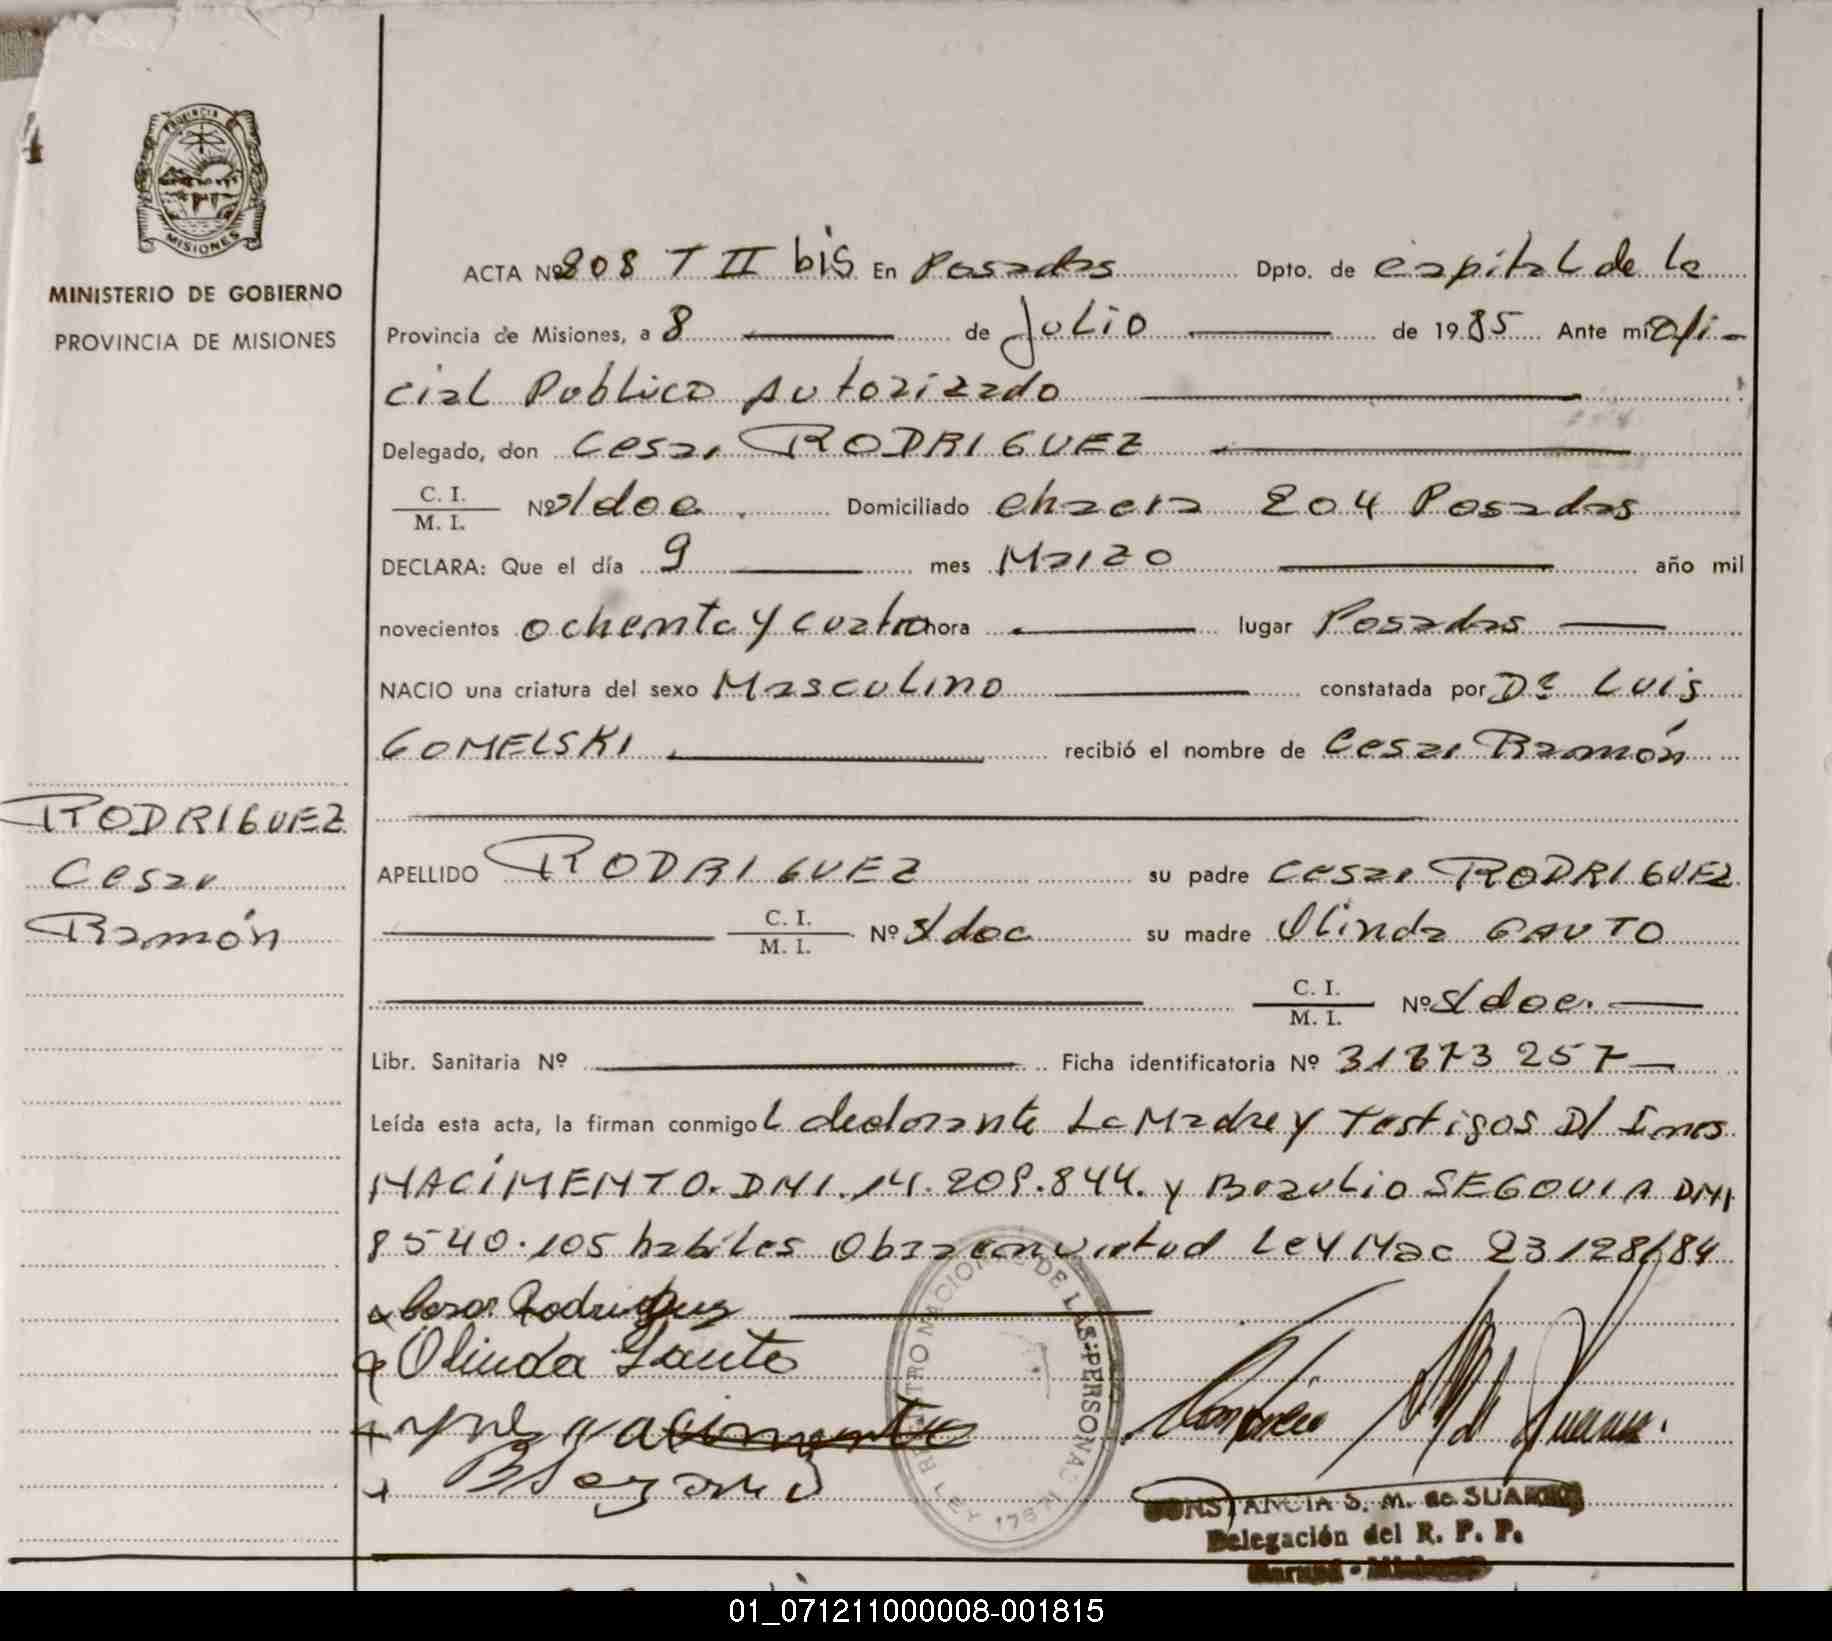 PROVINCIA DE
MISIONES
MINISTERIO DE GOBIERNO
PROVINCIA DE MISIONES
RODRIGUEZ
Cesar
Ramón
ACTA Nº 808 T II bis En Posadas Dpto. de Capital de la
Provincia de Misiones, a 8 de Julio de 1985 Ante mi Ofi-
cial Publico Autorizado
Delegado, don Cesar RODRIGUEZ
C. I.
M. I. Nº s/doc. Domiciliado Chacra 204 Posadas
DECLARA: Que el día 9 mes Marzo año mil
novecientos ochenta y cuatro hora lugar Posadas
NACIO una criatura del sexo Masculino constatada por Dr Luis
GOMELSKI recibió el nombre de Cesar Ramón
APELLIDO RODRIGUEZ su padre Cesar RODRIGUEZ
C. I.
M. I. Nº s/doc su madre Olinda GAUTO
C. I.
M. I. Nº s/doc.
Libr. Sanitaria Nº Ficha identificatoria Nº 31873257
Leída esta acta, la firman conmigo L declarante La Madre y Testigos D/ Ines
NACIMENTO. DNI. 14.209.844. y Brzulio SEGOVIA DNI
8540.105 habiles Obra en virtud Ley Nac 23128/84
x Cesar Rodriguez
x Olinda Gauto
x Nacimento
x B Segovia
REGISTRO NACIONAL DE LAS PERSONAS
LEY 17671
CONSTANCIA S. M. de SUAREZ
Delegación del R. P. P.
01_071211000008-001815